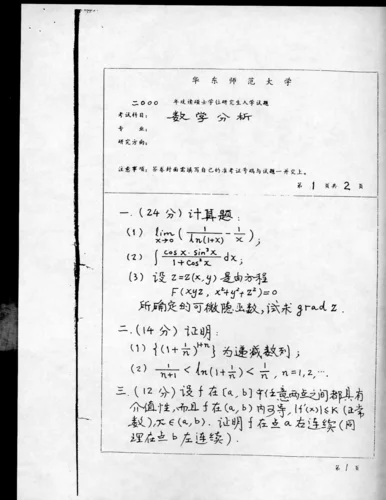 华东师范大学
二〇〇〇 年攻读硕士学位研究生入学试题
考试科目: 数学分析
专 业:
研究方向:
注意事项: 答卷封面需填写自己的准考证号码与试题一并交上。
第 1 页共 2 页
一.(24分)计算题:
(1) lim x→0 (1/ln(1+x) - 1/x);
(2) ∫ cos x·sin³x / 1+cos²x dx;
(3) 设 z=z(x,y) 是由方程
F(xyz, x²+y²+z²)=0
所确定的可微隐函数,试求 grad z.
二.(14分)证明:
(1) {(1+1/n)^{1+n}} 为递减数列;
(2) 1/n+1 < ln(1+1/n) < 1/n, n=1,2,….
三.(12分)设f在[a,b]中任意两点之间都具有
介值性,而且f在(a,b)内可导,|f'(x)|≤K(正常
数),x∈(a,b). 证明f在点a右连续(同
理在点b左连续).
第 1 页